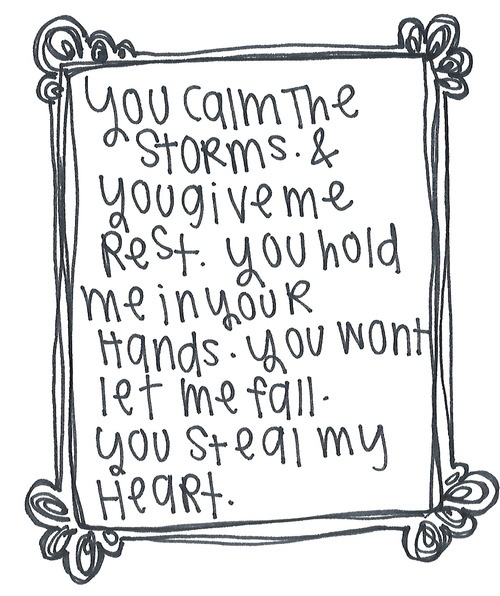 You calm The
STORMS. &
you give me
Rest. you hold
me in youR
Hands. you wont
let me fall.
you steal my
HeaRt.